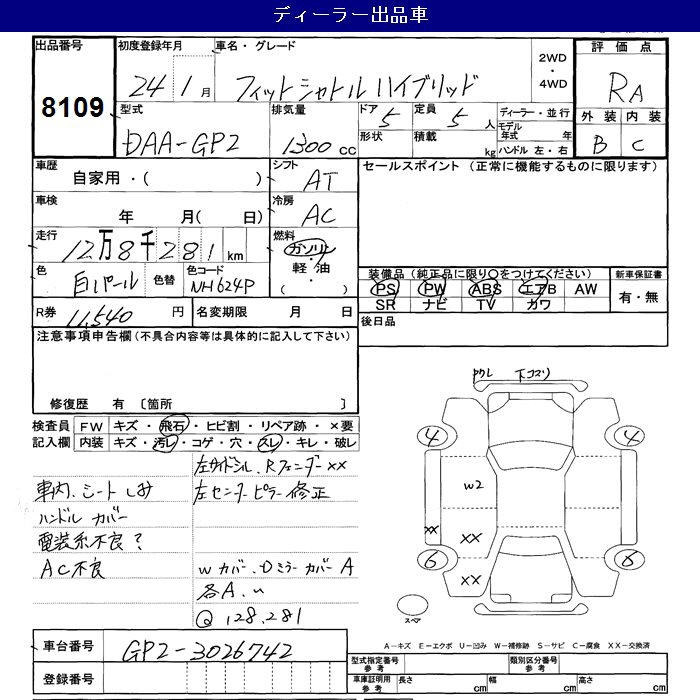 ディーラー出品車
出品番号
8109
初度登録年月
24年1月
車名・グレード
フィットシャトルハイブリッド
2WD
・
4WD
評価点
RA
外装 内装
B C
型式
DAA-GP2
排気量
1300cc
ドア 5
定員 5人
形状
積載 kg
ディーラー・並行
モデル年式 年
ハンドル 左・右
車歴
自家用・( )
シフト
AT
セールスポイント (正常に機能するものに限ります)
車検
年 月( 日)
冷房
AC
走行
12万8千281km
燃料
ガソリン
・
軽・油
・
( )
色
白パール
色替
色コード
NH624P
装備品(純正品に限り○をつけてください)
PS PW ABS エアB AW
SR ナビ TV カワ
新車保証書
有・無
R券 11,540円
名変期限 月 日
後日品
注意事項申告欄(不具合内容等は具体的に記入して下さい)
修復歴 有 〔箇所 〕
検査員記入欄
FW キズ・飛石・ヒビ割・リペア跡・×要
内装 キズ・汚レ・コゲ・穴・スレ・キレ・破レ
左サイドシル、Rフェンダー××
車内、シートしみ
左センターピラー修正
ハンドル カバー
電装系不良?
AC不良
W カバー、Dミラー カバーA
各A、〃
Q 128,281
下コスリ
4 4
W2
××
××
6 6
××
スペア
A-キズ E-エクボ U-凹み W-補修跡 S-サビ C-腐食 XX-交換済
車台番号
GP2-3026742
登録番号
型式指定番号 参考
類別区分番号 参考
車庫証明用 参考
長さ cm
幅 cm
高さ cm